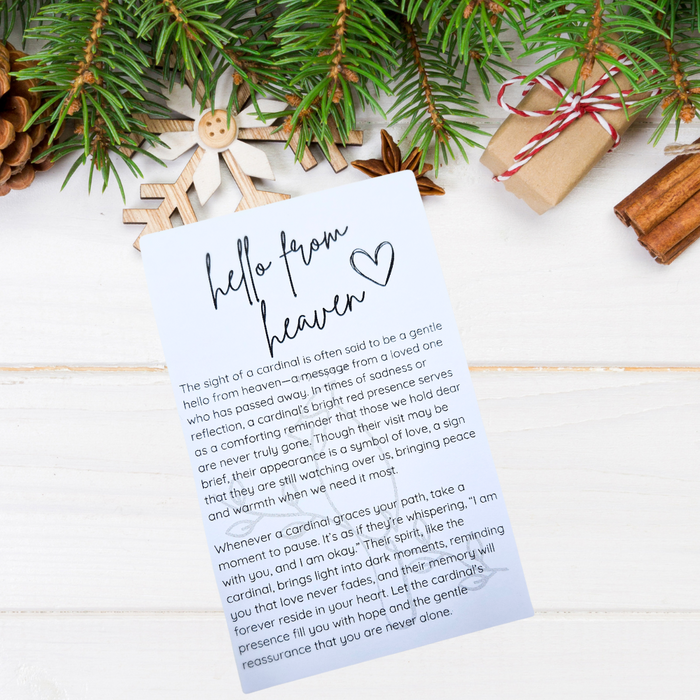 hello from
heaven
The sight of a cardinal is often said to be a gentle
hello from heaven—a message from a loved one
who has passed away. In times of sadness or
reflection, a cardinal's bright red presence serves
as a comforting reminder that those we hold dear
are never truly gone. Though their visit may be
brief, their appearance is a symbol of love, a sign
that they are still watching over us, bringing peace
and warmth when we need it most.
Whenever a cardinal graces your path, take a
moment to pause. It's as if they're whispering, "I am
with you, and I am okay." Their spirit, like the
cardinal, brings light into dark moments, reminding
you that love never fades, and their memory will
forever reside in your heart. Let the cardinal's
presence fill you with hope and the gentle
reassurance that you are never alone.